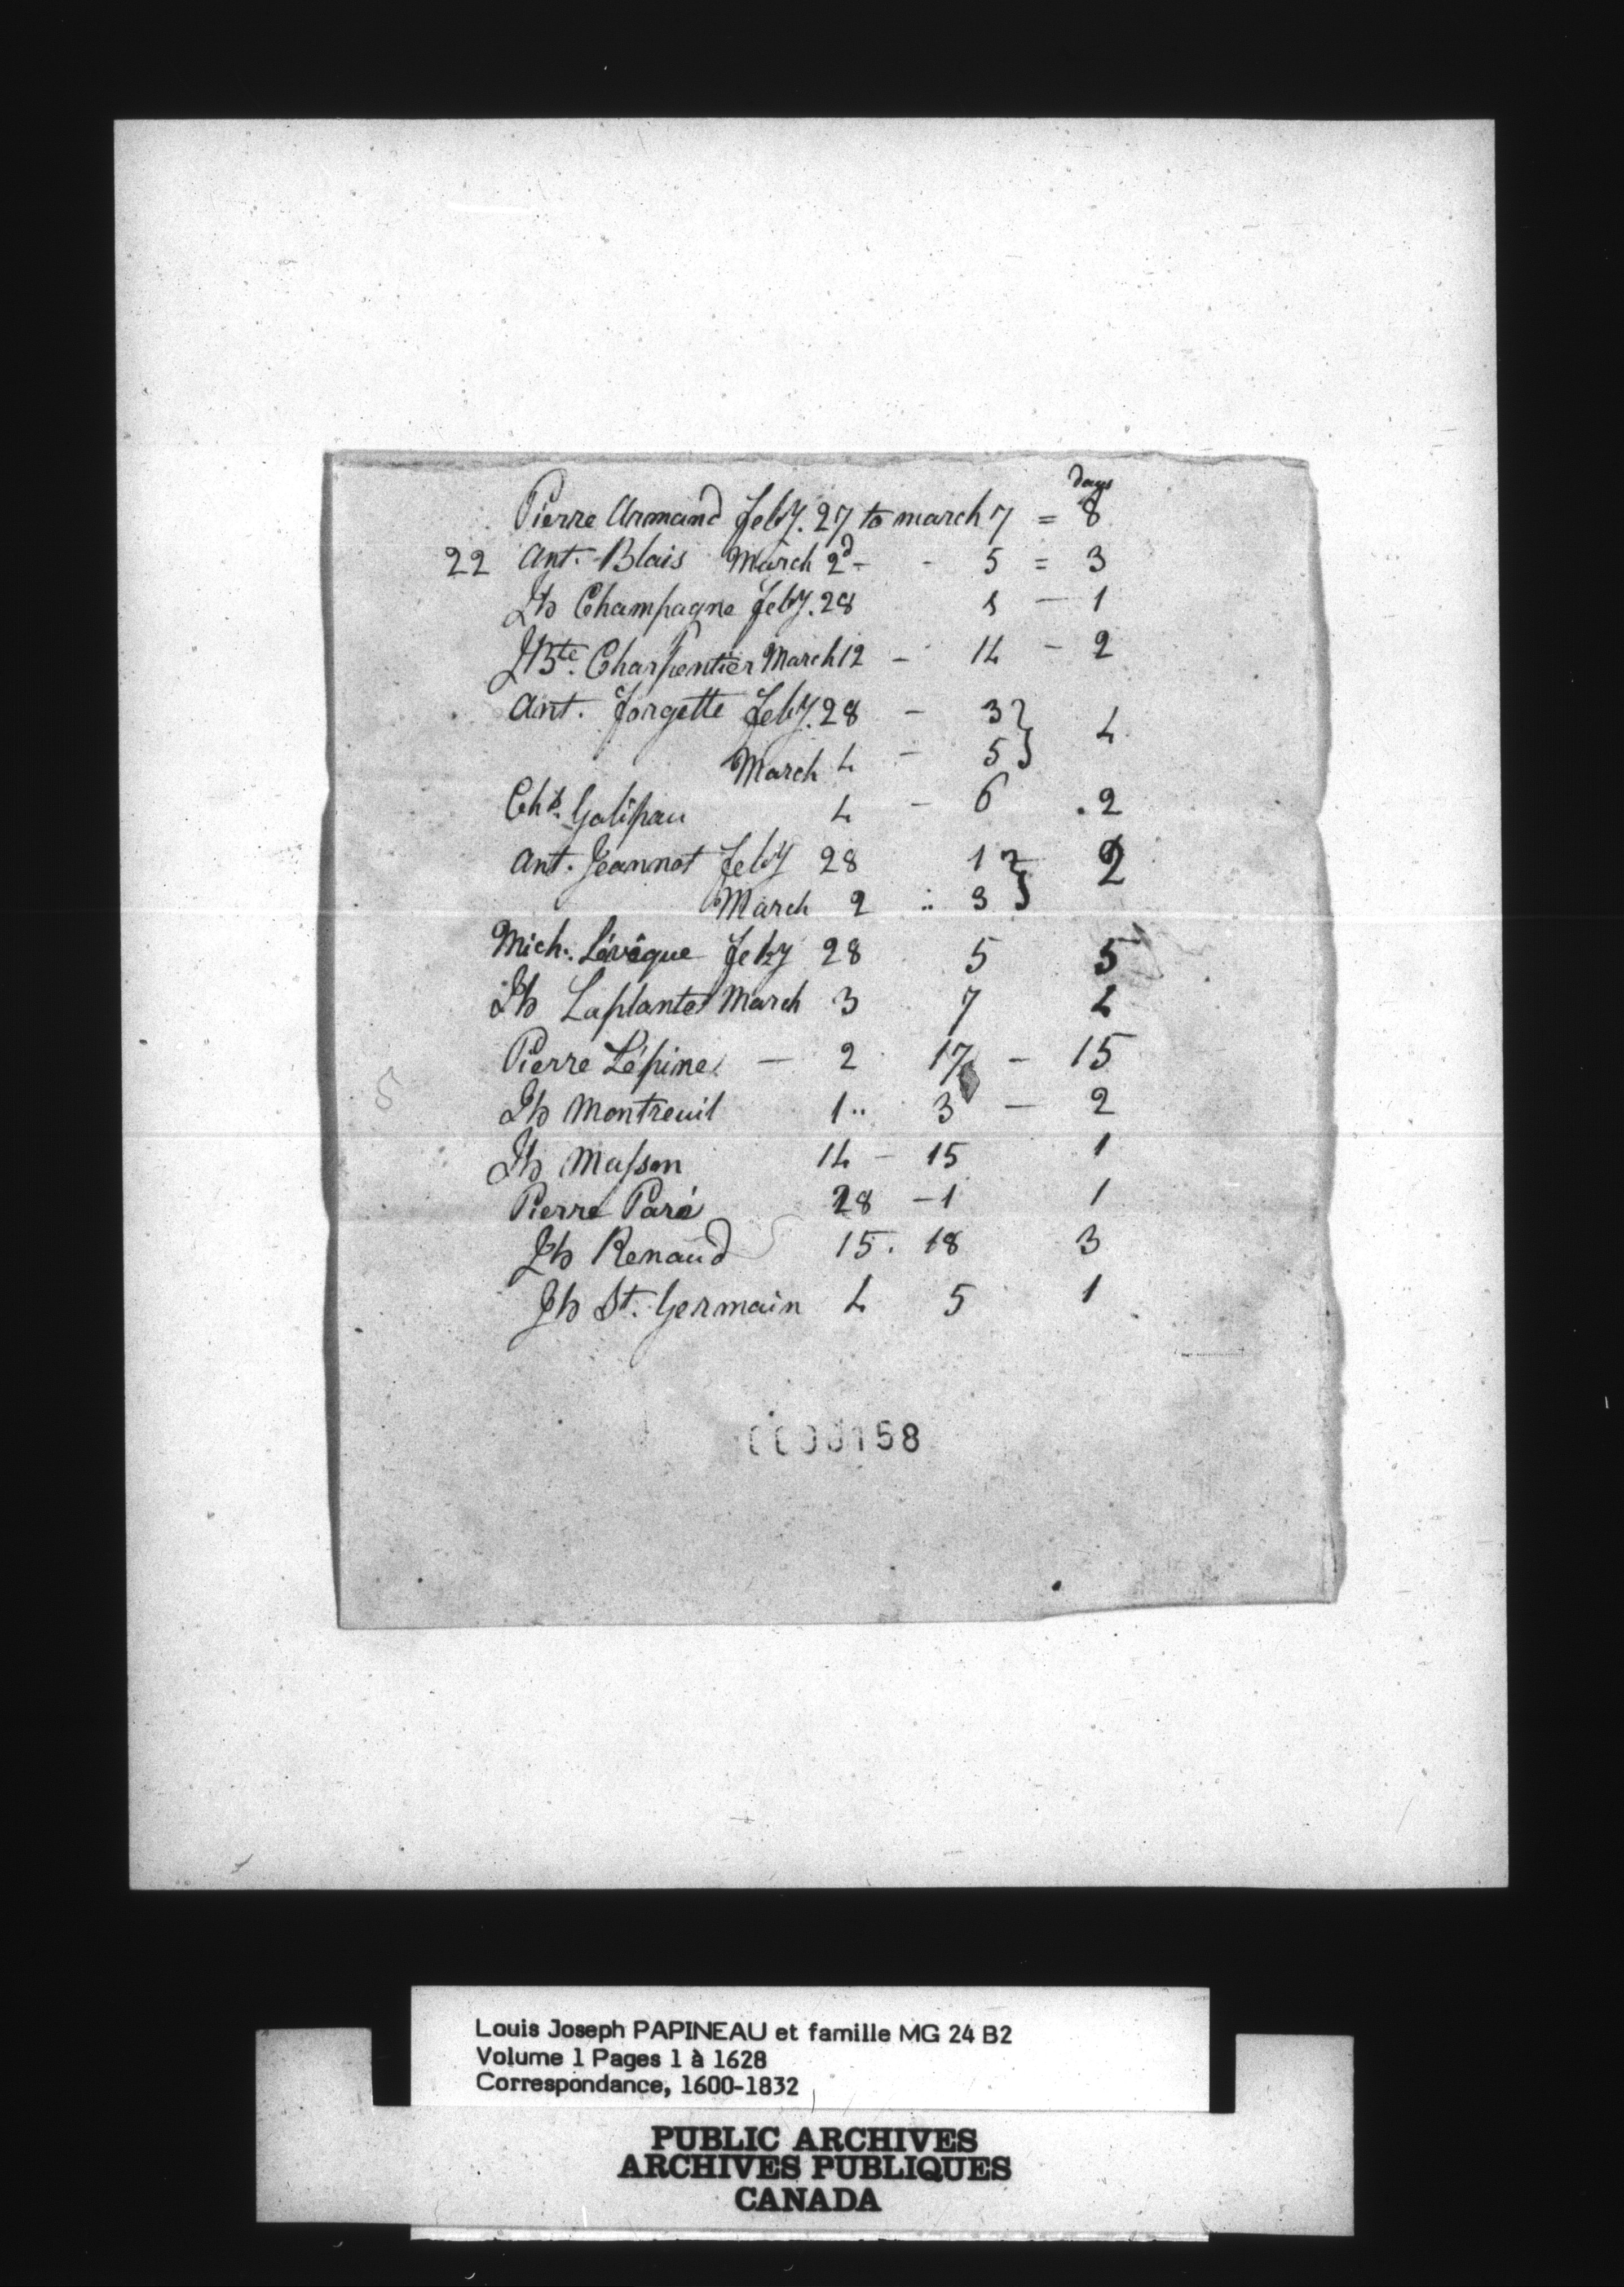 days
Pierre Armand Feby. 27 to march 7 = 8
22 Ant. Blais March 2d - - 5 = 3
Jh Champagne Feby. 28 1 - 1
JBte. Charpentier March 12 - 14 - 2
Ant. Forgette Feby. 28 - 3 } 4
March 4 - 5 }
Chs. Galipau 4 - 6 . 2
Ant. Jeannot Feby 28 1 } 2
March 2 .. 3 }
Mich. Lévêque Feby 28 5 5
Jh Laplante March 3 7 4
Pierre Lépine - 2 17 - 15
Jh Montreuil 1 .. 3 - 2
Jh Masson 14 - 15 1
Pierre Paré 28 - 1 1
Jh Renaud 15 . 18 3
Jh St. Germain 4 5 1
0000158
Louis Joseph PAPINEAU et famille MG 24 B2
Volume 1 Pages 1 à 1628
Correspondance, 1600-1832
PUBLIC ARCHIVES
ARCHIVES PUBLIQUES
CANADA